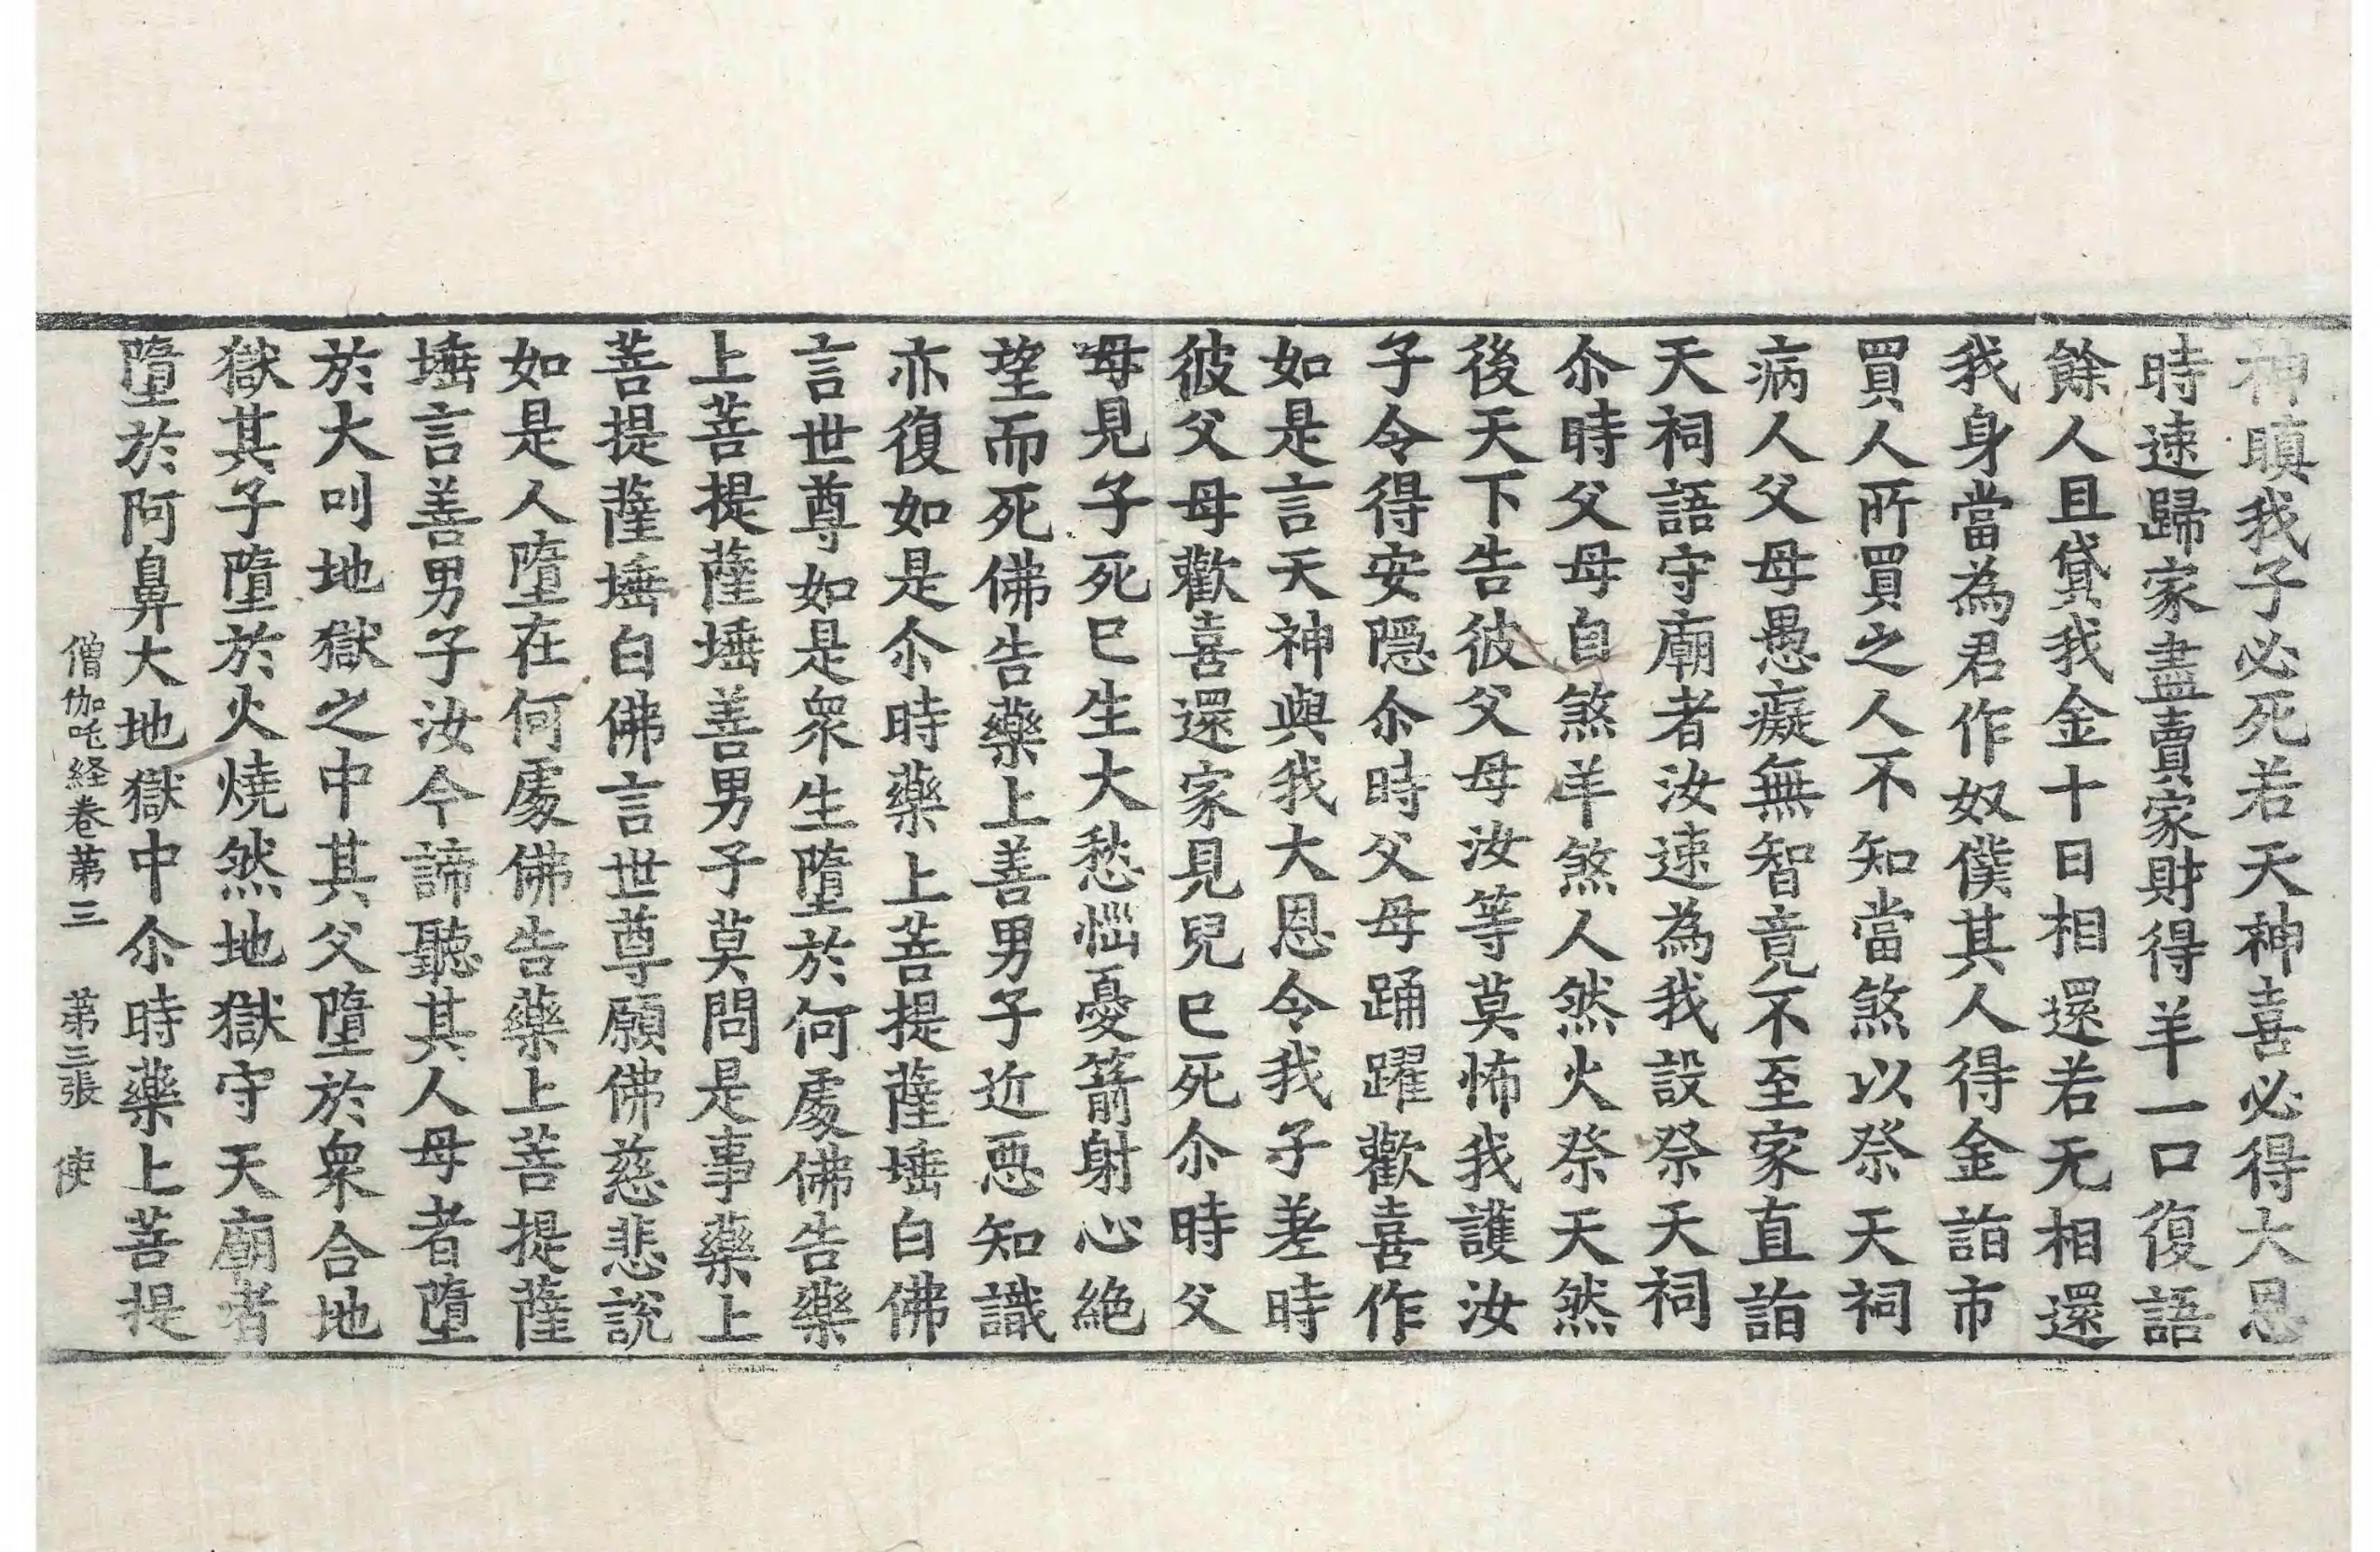 神瞋我子必死若天神喜必得大恩
時速歸家盡賣家財得羊一口復語
餘人且貸我金十日相還若无相還
我身當為君作奴僕其人得金詣市
買人所買之人不知當煞以祭天祠
病人父母愚癡無智竟不至家直詣
天祠語守廟者汝速為我設祭天祠
尒時父母自煞羊煞人然火祭天然
後天下告彼父母汝等莫怖我護汝
子令得安隱尒時父母踊躍歡喜作
如是言天神與我大恩令我子差時
彼父母歡喜還家見兒已死尒時父
母見子死已生大愁惱憂箭射心絶
望而死佛告藥上善男子近惡知識
亦復如是尒時藥上菩提薩埵白佛
言世尊如是衆生墮於何處佛告藥
上菩提薩埵善男子莫問是事藥上
菩提薩埵白佛言世尊願佛慈悲說
如是人墮在何處佛告藥上菩提薩
埵言善男子汝今諦聽其人母者墮
於大叫地獄之中其父墮於衆合地
獄其子墮於火燒然地獄守天廟者
墮於阿鼻大地獄中尒時藥上菩提
僧伽吒経卷苐三 苐三張 使